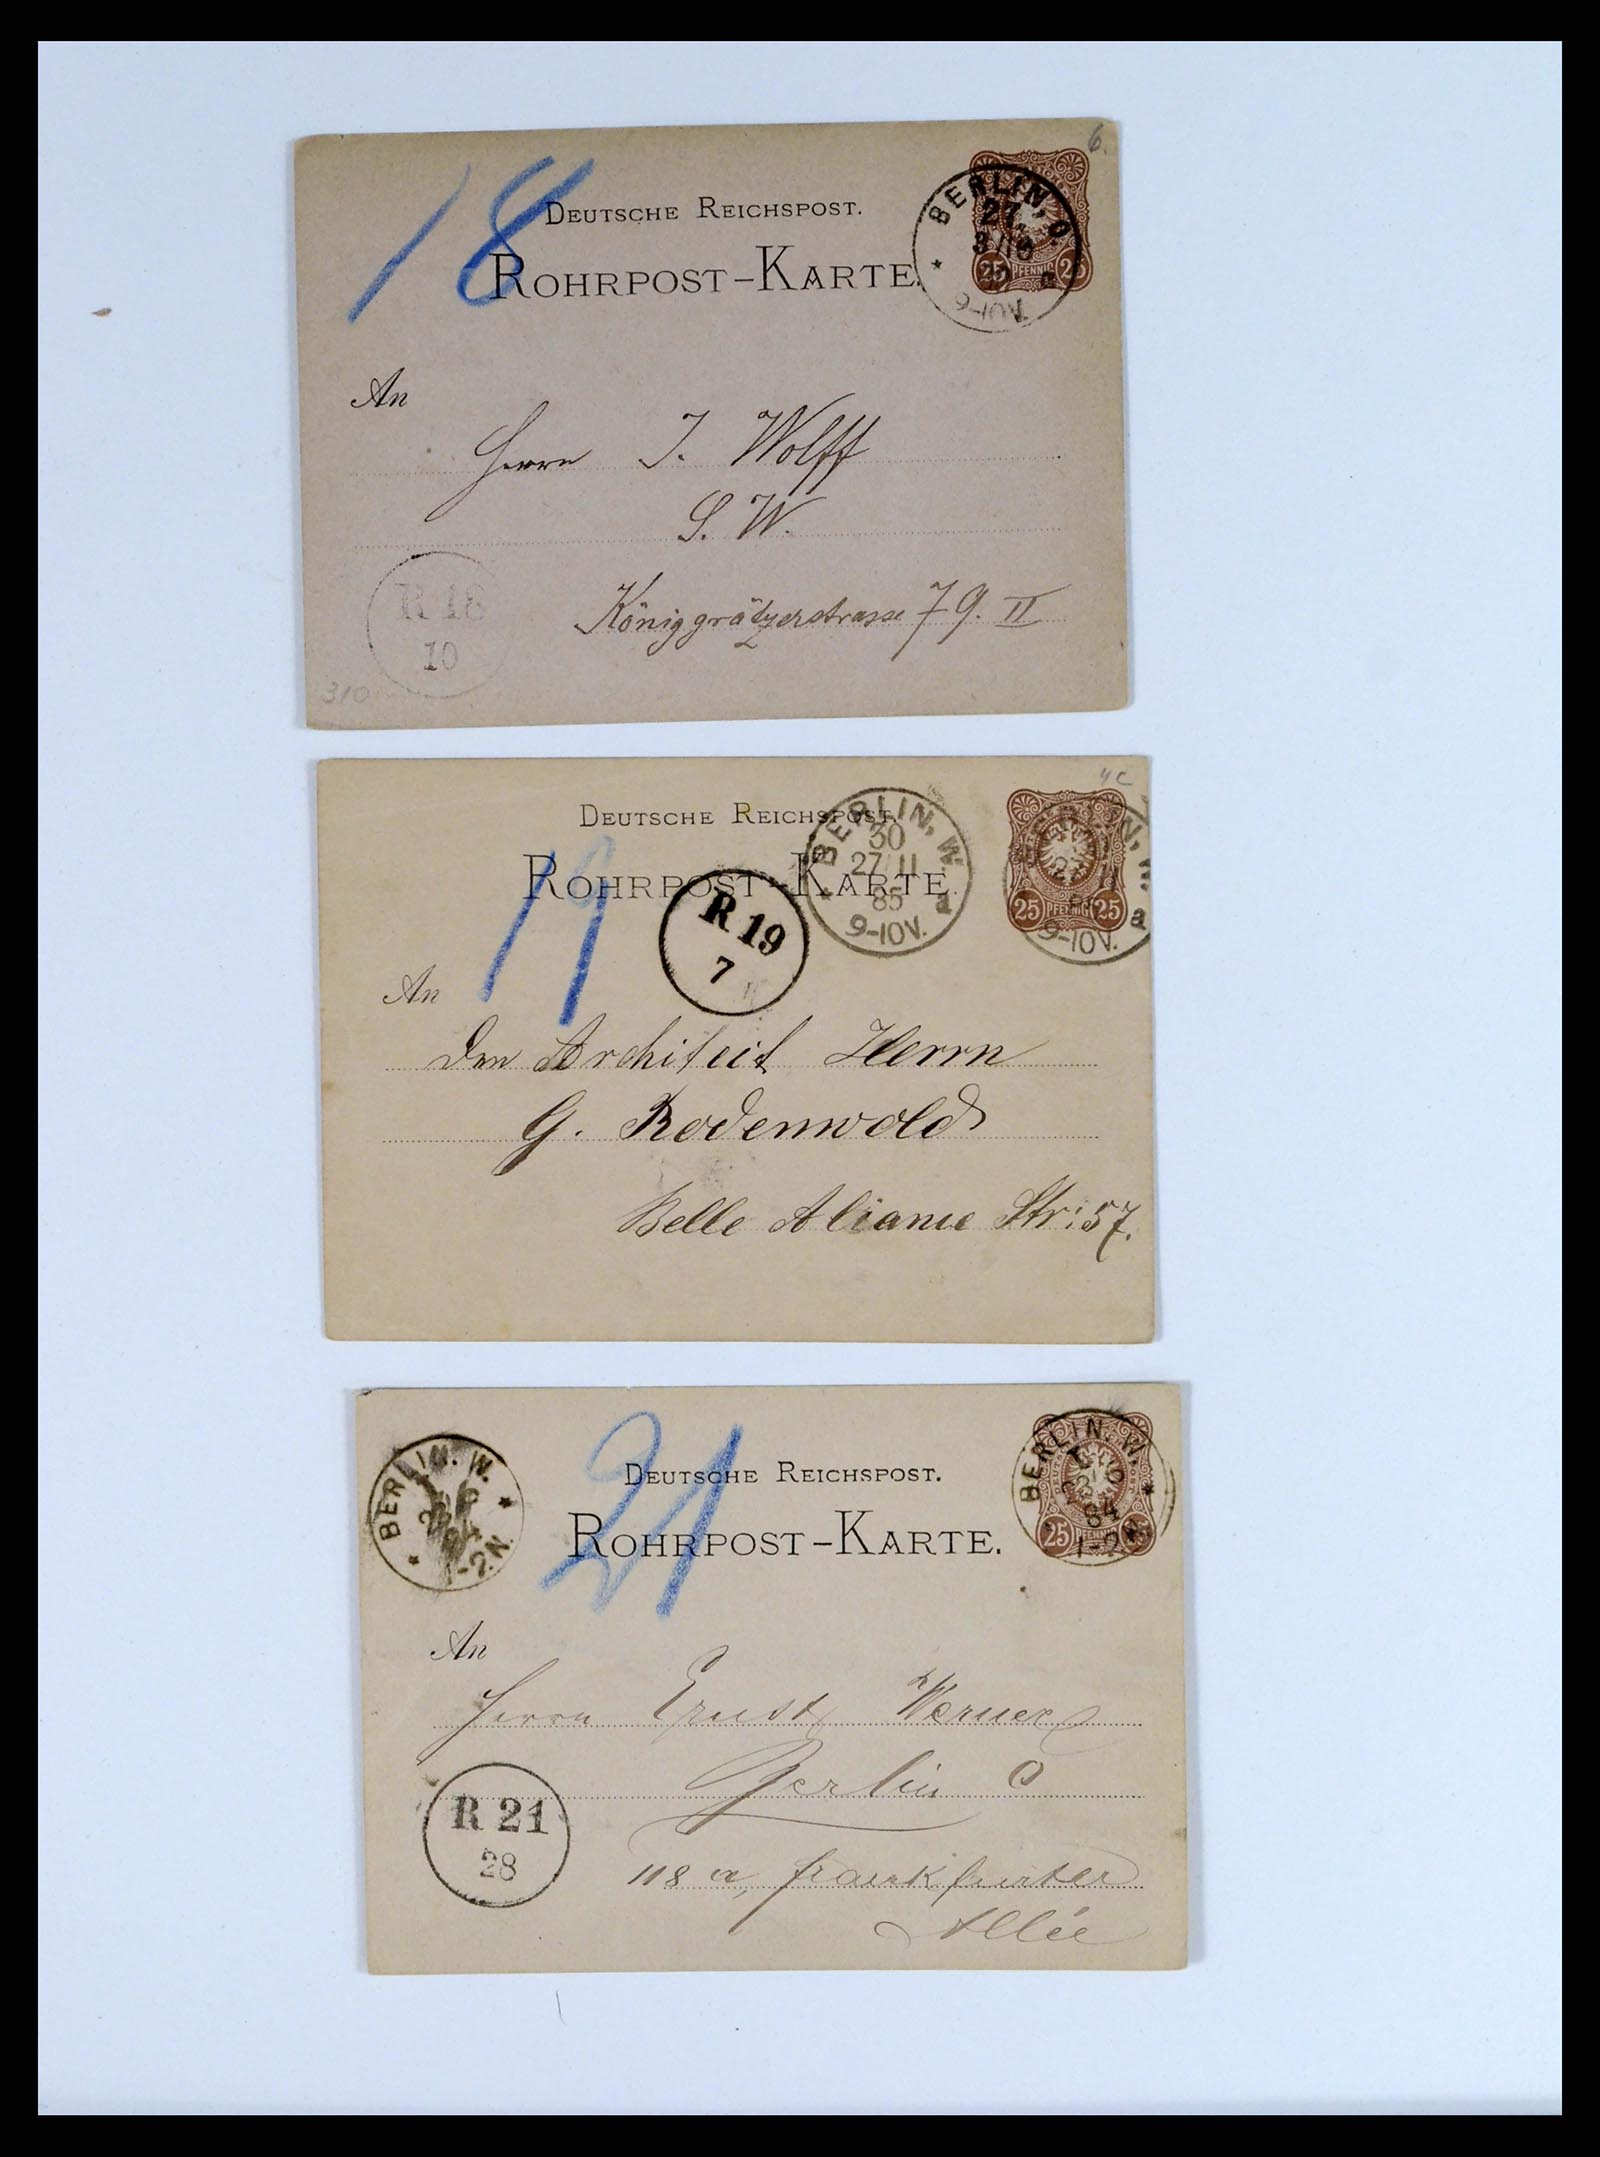 6.
18
DEUTSCHE REICHSPOST.
ROHRPOST-KARTE.
BERLIN, O.
27.
25 PFENNIG 25
An
Herrn J. Wolff
S. W.
Königgrätzerstrasse 79. II
R 18
10
310
4c
DEUTSCHE REICHSPOST.
ROHRPOST-KARTE.
19
BERLIN, W.
30
27 11
85
a
9-10V.
25 PFENNIG 25
a
9-10V.
R 19
7
An
Den Architect Herrn
G. Rodenwold
Belle Aliance Str: 57.
21
DEUTSCHE REICHSPOST.
ROHRPOST-KARTE.
BERLIN. W.
1-2N.
BERLIN. W.
84
1-2N.
25 PFENNIG 25
An
Herrn Ernst Werner
Berlin O
118 a, Frankfurter
Allée
R 21
28